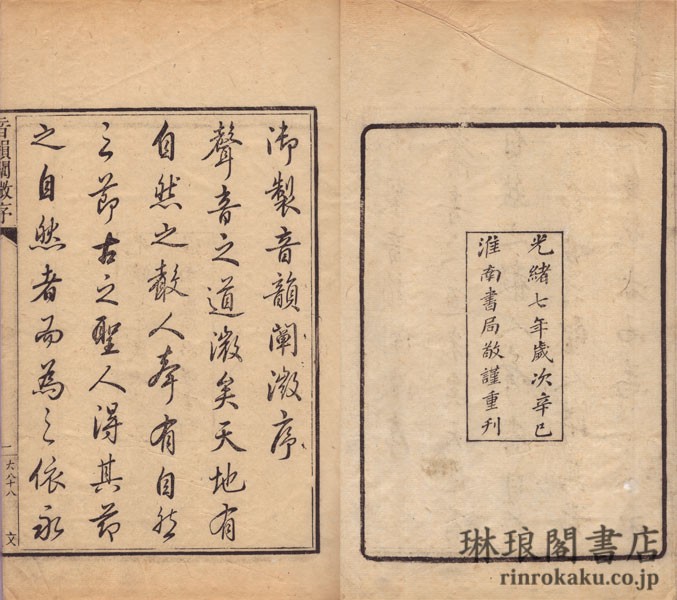 光緒七年歲次辛巳
淮南書局敬謹重刊
御製音韻闡微序
聲音之道微矣天地有
自然之聲人聲有自然
之節古之聖人得其節
之自然者而為之依永
音韻闡微序
一
六八十八
文
琳琅閣書店
rinrokaku.co.jp